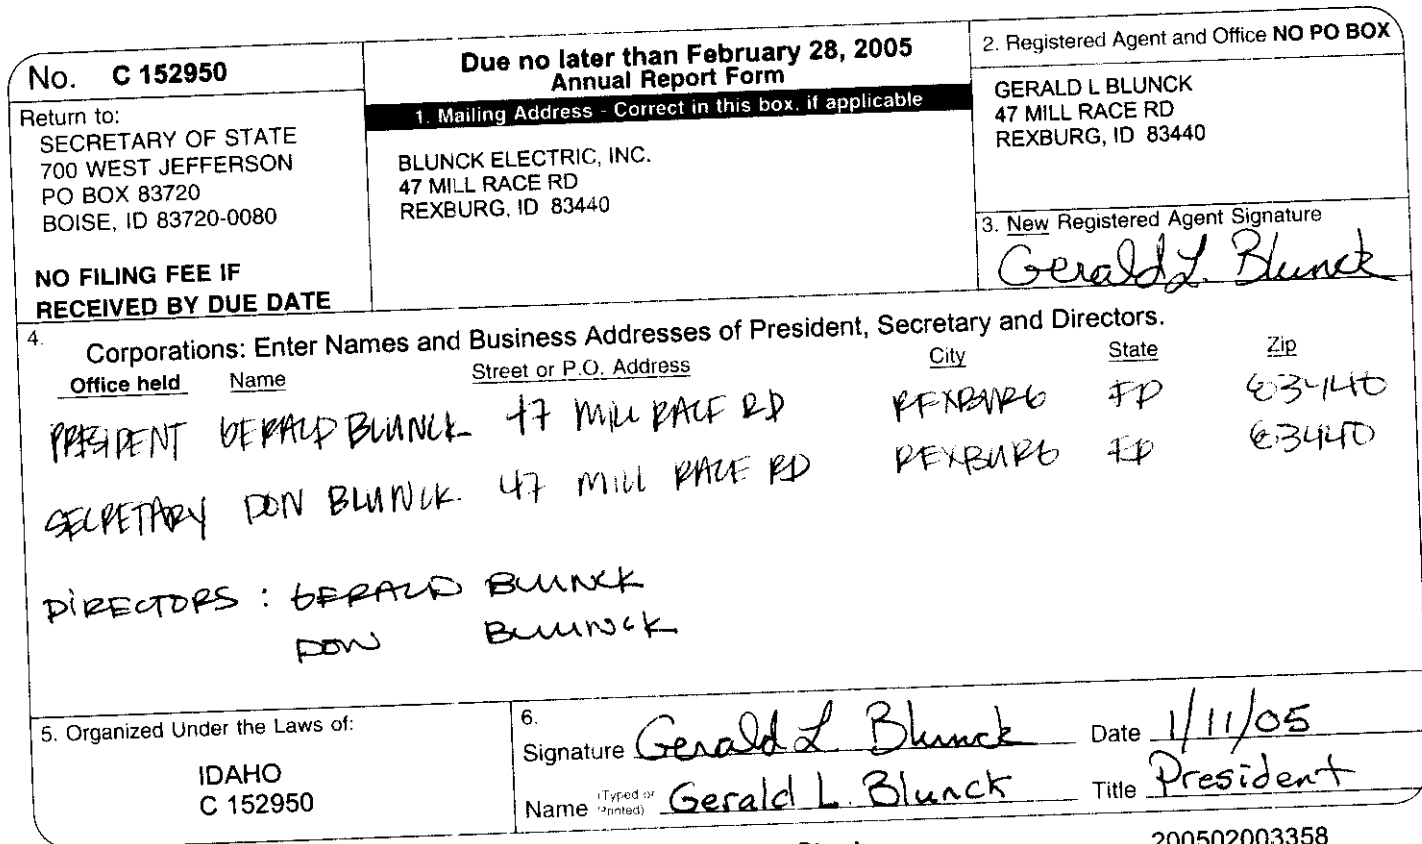 No. C 152950
Return to:
SECRETARY OF STATE
700 WEST JEFFERSON
PO BOX 83720
BOISE, ID 83720-0080
NO FILING FEE IF
RECEIVED BY DUE DATE
Due no later than February 28, 2005
Annual Report Form
1. Mailing Address - Correct in this box, if applicable
BLUNCK ELECTRIC, INC.
47 MILL RACE RD
REXBURG, ID 83440
2. Registered Agent and Office NO PO BOX
GERALD L BLUNCK
47 MILL RACE RD
REXBURG, ID 83440
3. New Registered Agent Signature
Gerald L. Blunck
4. Corporations: Enter Names and Business Addresses of President, Secretary and Directors.
Office held Name Street or P.O. Address City State Zip
PRESIDENT GERALD BLUNCK 47 MILL RACE RD REXBURG ID 83440
SECRETARY DON BLUNCK. 47 MILL RACE RD REXBURG ID 83440
DIRECTORS : GERALD BLUNCK
DON BLUNCK
5. Organized Under the Laws of:
IDAHO
C 152950
6.
Signature Gerald L Blunck Date 1/11/05
Name (Typed or Printed) Gerald L. Blunck Title President
200502003358